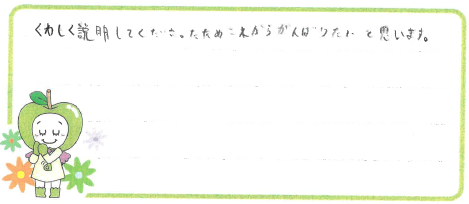 くわしく説明してくださったためこれからがんばりたいと思います。